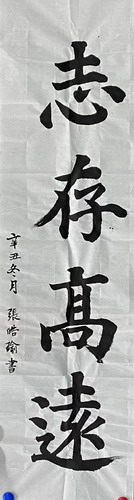 志存高遠
辛丑冬月 張皓瑜書